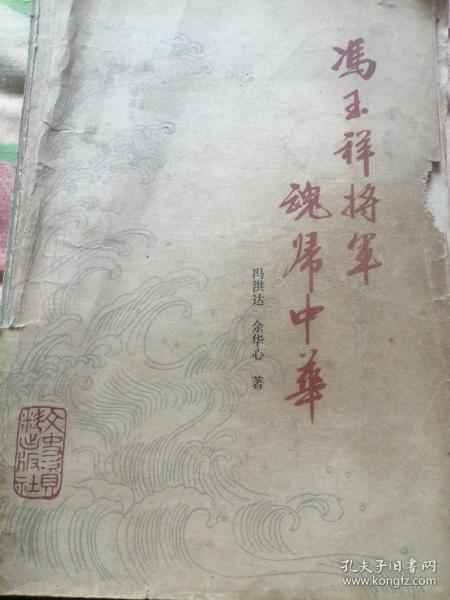 馮玉祥将军
魂归中華
冯洪达 余华心 著
文史资料出版社
孔夫子旧书网
www.kongfz.com